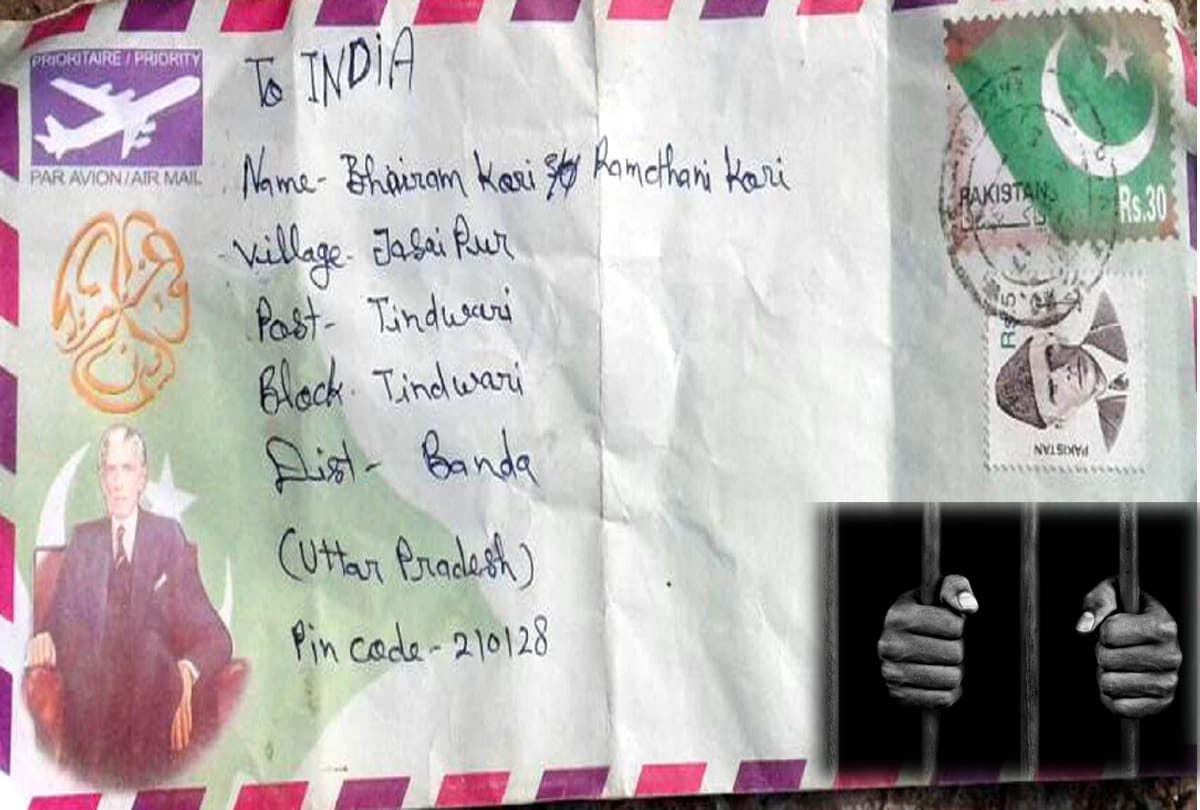 PRIORITAIRE / PRIORITY
PAR AVION / AIR MAIL
To INDIA
Name- Bhairam Kori S/o Ramothani Kori
Village- Jasai Pur
Post- Tindwari
Block- Tindwari
Dist- Banda
(Uttar Pradesh)
Pin code- 210128
PAKISTAN
Rs.30
Rs.5
PAKISTAN